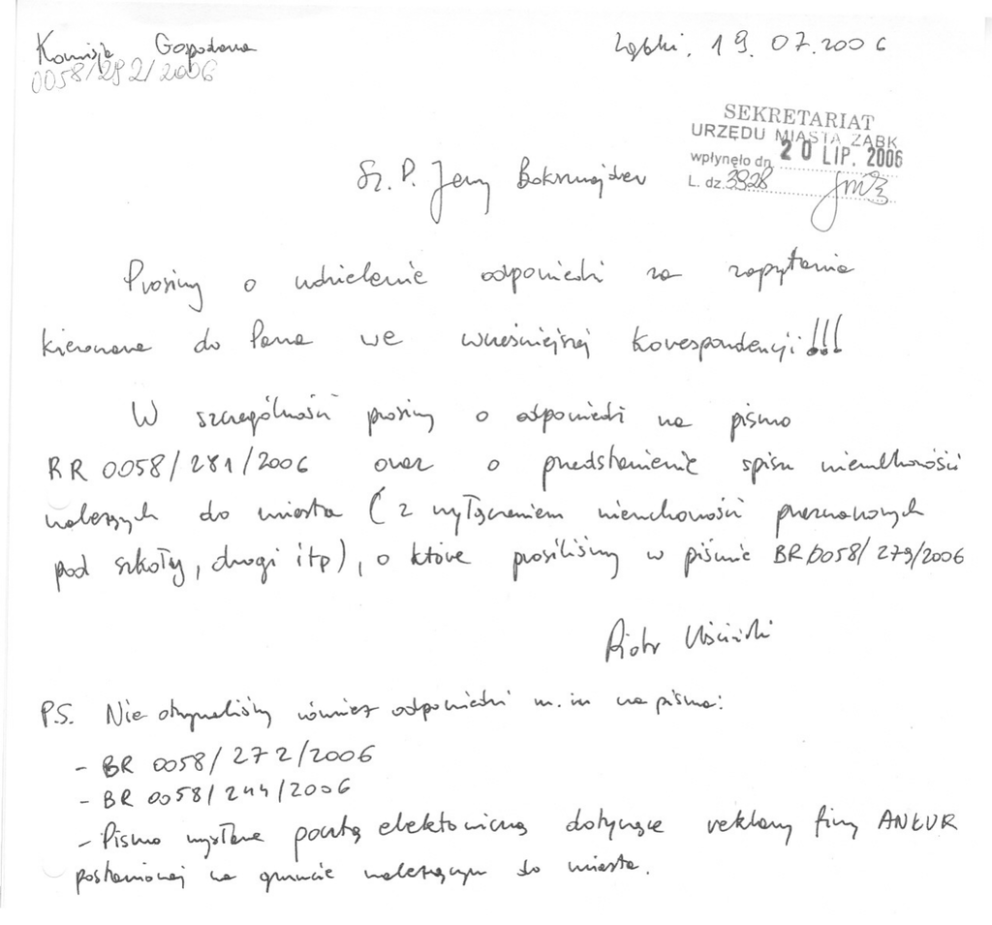 Komisja Gospodarcza
0058/292/2006
Ząbki, 19.07.2006
SEKRETARIAT
URZĘDU MIASTA ZĄBK
wpłynęło dn. 20 LIP. 2006
L. dz. 3928
Sz. P. Jerzy Boksznajder
Prosimy o udzielenie odpowiedzi na zapytania
kierowane do Pana we wcześniejszej korespondencji!!!
W szczególności prosimy o odpowiedzi na pismo
BR 0058/281/2006 oraz o przedstawienie spisu nieruchomości
należących do miasta (z wyłączeniem nieruchomości przeznaczonych
pod szkoły, drogi itp), o które prosiliśmy w piśmie BR 0058/279/2006
Piotr Uściński
P.S. Nie otrzymaliśmy również odpowiedzi m.in na pisma:
- BR 0058/272/2006
- BR 0058/244/2006
- Pismo wysłane pocztą elektroniczną dotyczące reklamy firmy
postawionej na gruncie należącym do miasta.